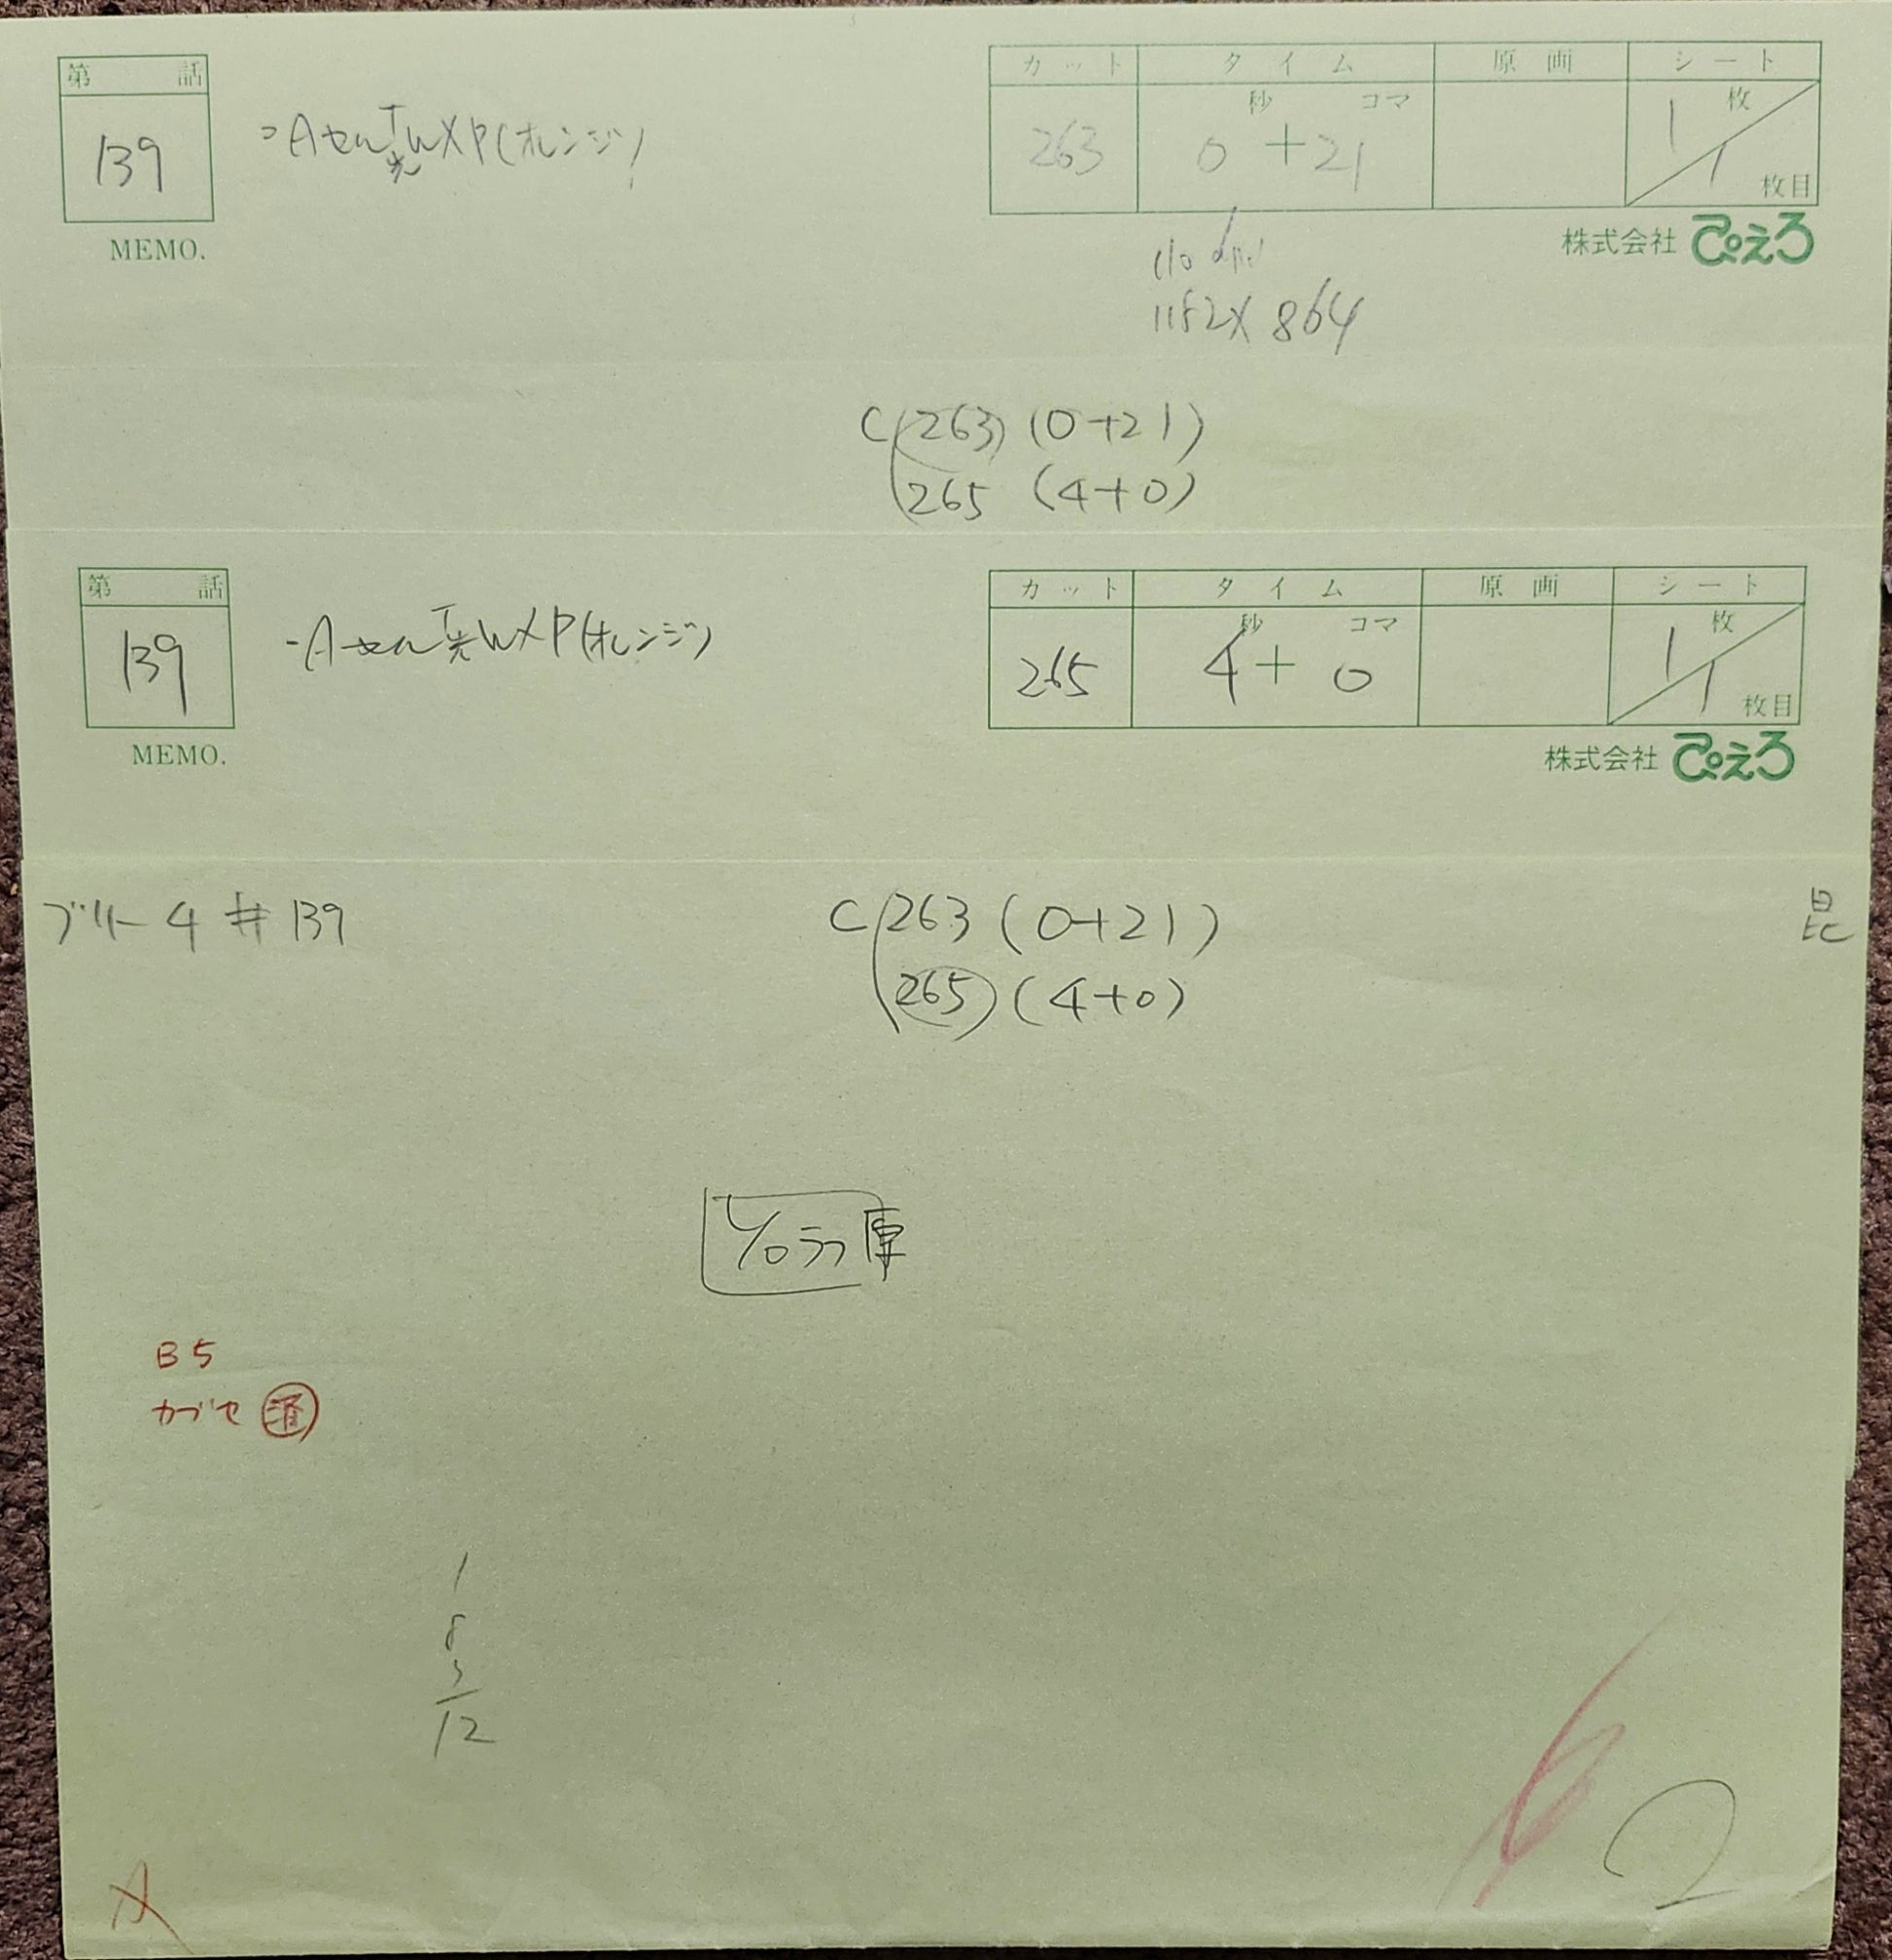 第 話 カット タイム 原画 シート
139 -Aセル T光 WXP(オレンジ) 263 秒 0 + 21 コマ 1 枚 1 枚目
MEMO. 株式会社 ぴえろ
1182X 864
C 263 (0+21)
265 (4+0)
第 話 カット タイム 原画 シート
139 -Aセル T光 WXP(オレンジ) 265 秒 4 + 0 コマ 1 枚 1 枚目
MEMO. 株式会社 ぴえろ
ブリート 4 #139 C 263 (0+21) 昆
265 (4+0)
ラフ原
B5
カブセ 済
1
8
3
12
6 2
A